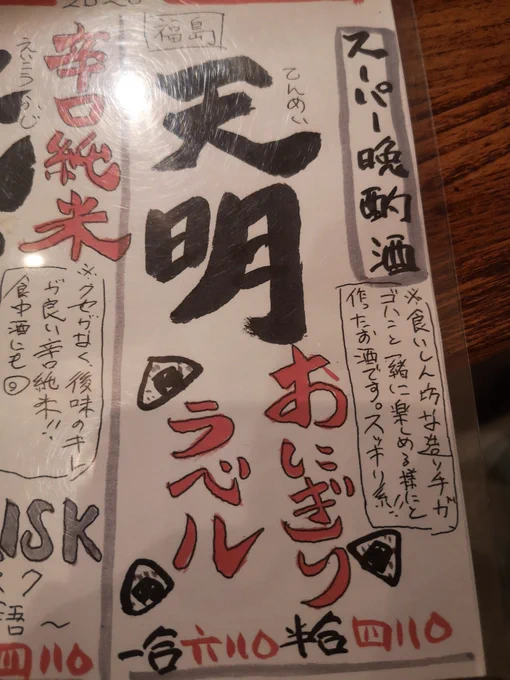 スーパー晩酌酒
※食いしん坊な造り手が
ゴハンと一緒に楽しめる様にと
作ったお酒です。スッキリ系!!
福島
てんめい
天明
おにぎり
ラベル
一合六110半合四110
辛口純米
※クセがなく、後味のキレ
が良い辛口純米!!
食中酒にも
ISK
四110